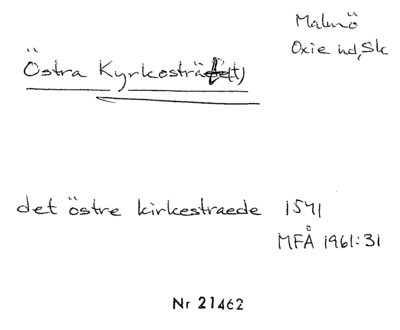 Malmö
Oxie hd, Sk
Östra Kyrkosträ(t)
det östre kirkestraede 1541
MFÅ 1961:31
Nr 21462